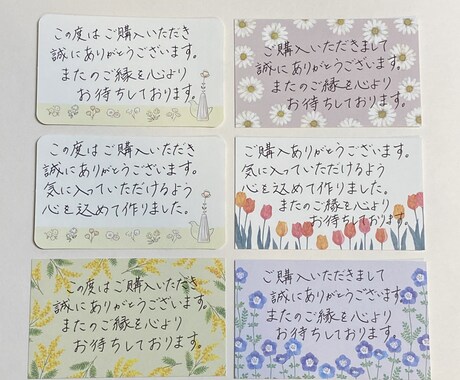 この度はご購入いただき
誠にありがとうございます。
またのご縁を心より
お待ちしております。
ご購入いただきまして
誠にありがとうございます。
またのご縁を心より
お待ちしております。
この度はご購入いただき
誠にありがとうございます。
気に入っていただけるよう
心を込めて作りました。
ご購入ありがとうございます。
気に入っていただけるよう
心を込めて作りました。
またのご縁を心より
お待ちしております。
この度はご購入いただき
誠にありがとうございます。
またのご縁を心より
お待ちしております。
ご購入いただきまして
誠にありがとうございます。
またのご縁を心より
お待ちしております。